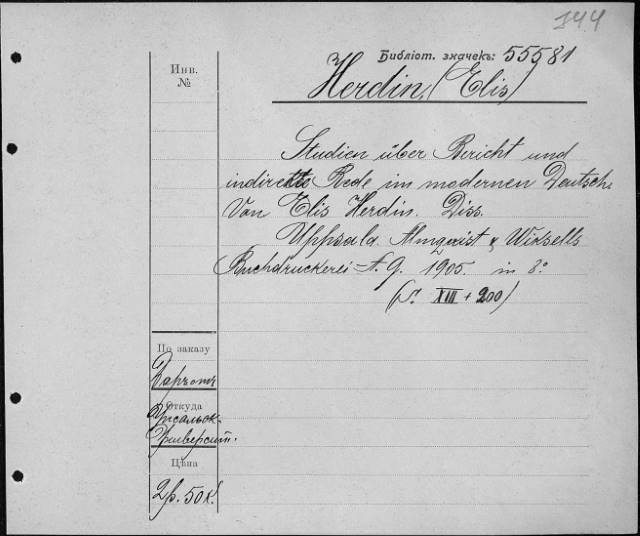 344
Библіот. значекъ: 55581
Инв.
№
Herdin, (Elis)
Studien über Bericht und
indirekte Rede im modernen Deutsch.
Von Elis Herdin. Diss.
Uppsala. Almqvist & Wiksells
Buchdruckerei-A. G. 1905. in 8°
(S. XIII + 200)
По заказу
Откуда
Упсальск.
Университ.
Цѣна
2р. 50к.